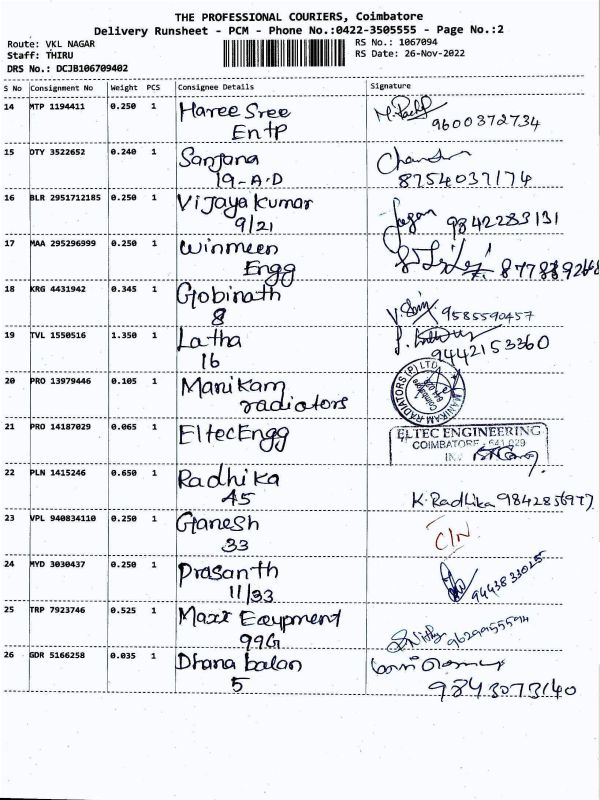 THE PROFESSIONAL COURIERS, Coimbatore
Delivery Runsheet - PCM - Phone No.:0422-3505555 - Page No.:2
Route: VKL NAGAR
RS No.: 1067094
Staff: THIRU
RS Date: 26-Nov-2022
DRS No.: DCJB106709402
S No Consignment No Weight PCS Consignee Details Signature
14 MTP 1194411 0.250 1 Haree Sree
Entp 9600372734
15 DTY 3522652 0.240 1 Sanjana
19-A-D 8754037174
16 BLR 2951712185 0.250 1 Vijaya kumar
9/21 9842283131
17 MAA 295296999 0.250 1 Winmeen
Engg
18 KRG 4431942 0.345 1 Gobinath
8 9585590457
19 TVL 1550516 1.350 1 Latha
16 9442153360
20 PRO 13979446 0.105 1 Manikam
radiators
MANIKAM RADIATORS (P) LTD
21 PRO 14187029 0.065 1 EltecEngg
ELTEC ENGINEERING
COIMBATORE - 641 029
22 PLN 1415246 0.650 1 Radhika
45 K. Radhika
23 VPL 940834110 0.250 1 Ganesh C/N
33
24 MYD 3030437 0.250 1 Prasanth
11/33 9443833025
25 TRP 7923746 0.525 1 Maxx Eqypment
99G
26 GDR 5166258 0.035 1 Dhana balan
5 9843073140